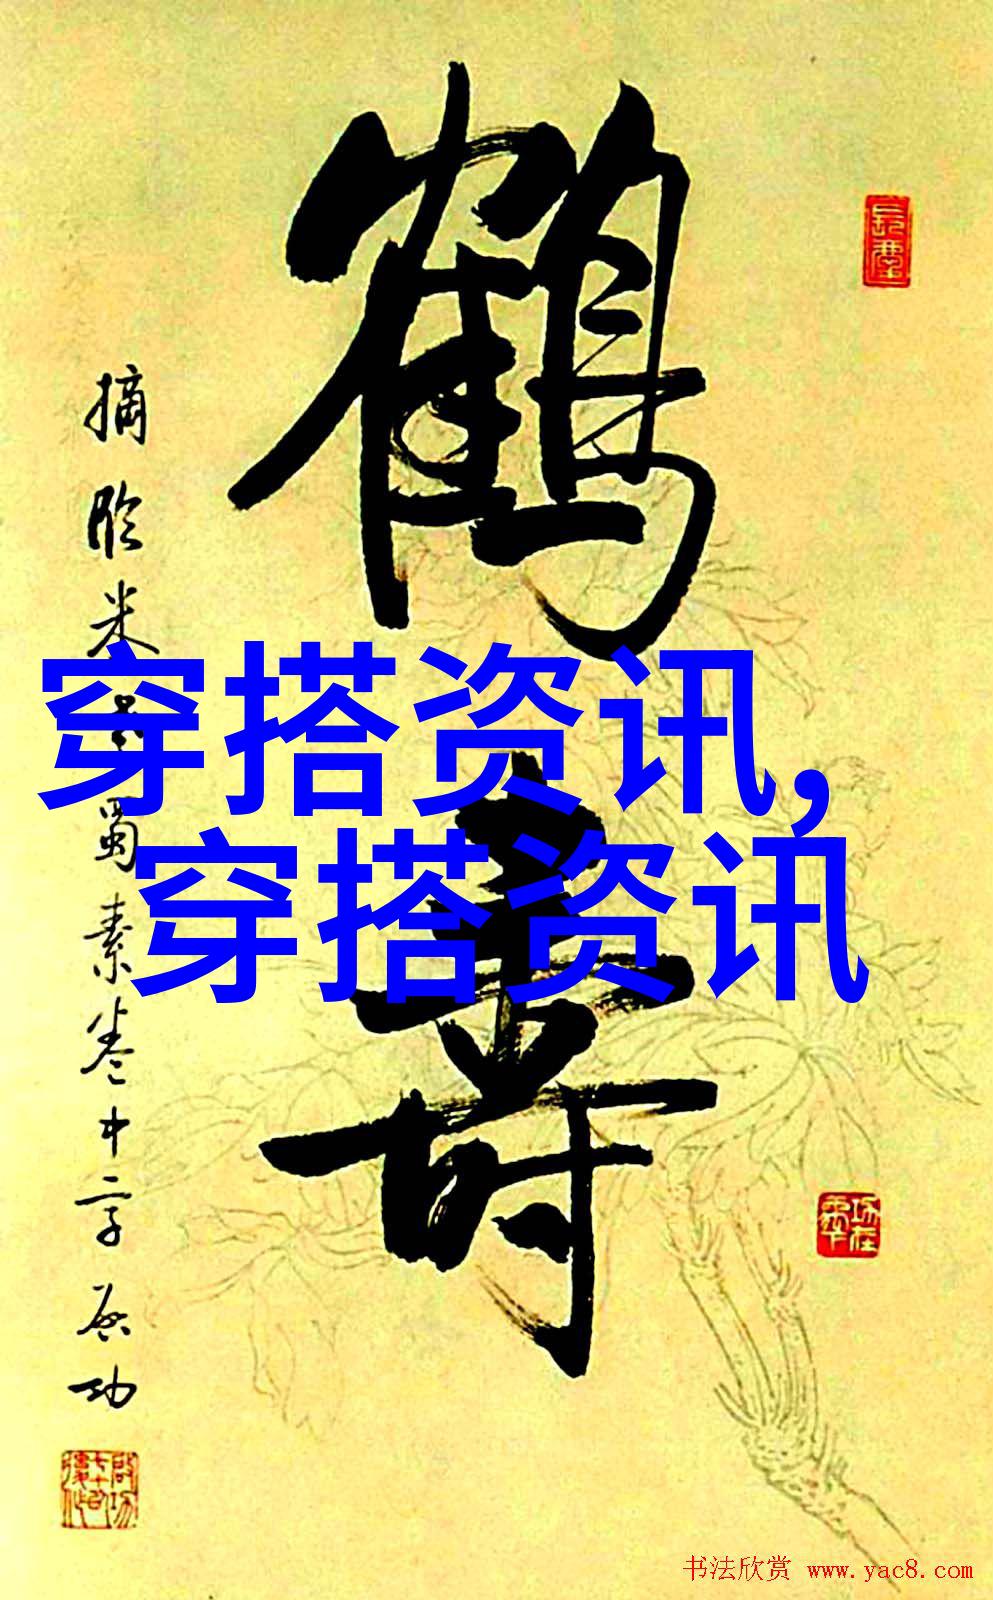 鹤寿
摘临米书蜀素卷中字启功
穿搭资讯,
穿搭资讯
书法欣赏 www.yac8.com